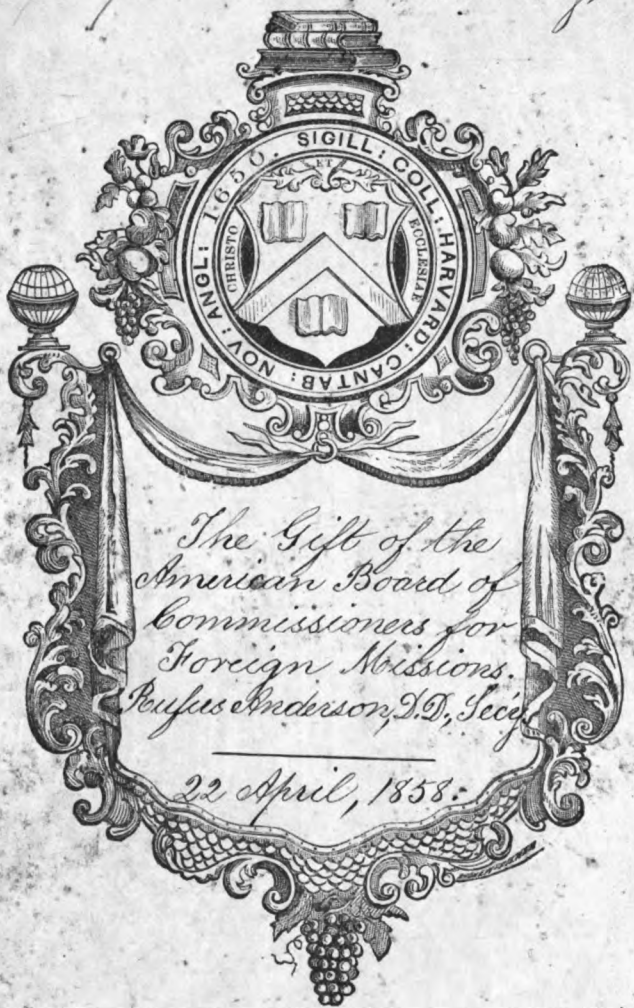 SIGILL: COLL: HARVARD: CANTAB: NOV: ANGL: 1650.
ET
CHRISTO
ECCLESIAE
The Gift of the
American Board of
Commissioners for
Foreign Missions.
Rufus Anderson, D.D., Secy.
22 April, 1858.